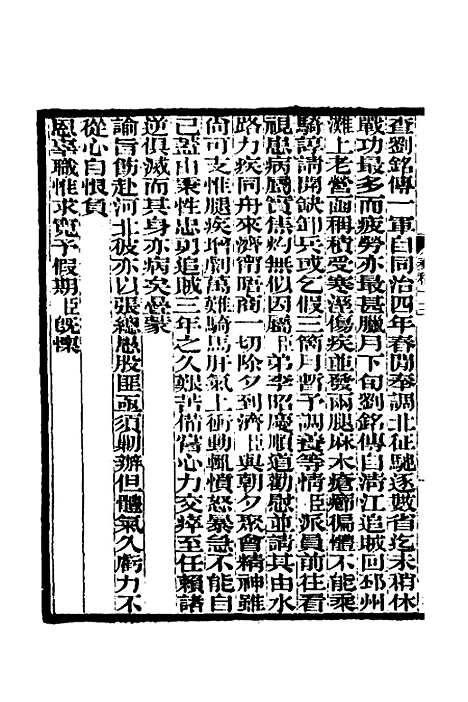 查劉銘傳一軍自同治四年春間奉調北征馳逐數省迄未稍休
戰功最多而疲勞亦最甚臘月下旬劉銘傳自清江追賊回邳州
灘上老營面稱積受寒溼傷疾並發兩腿麻木瘡癤徧體不能乘
騎諄請開缺卸兵或乞假三箇月暫予調養等情臣派員前往看
視患病屬實焦灼無似因屬臣弟李昭慶順道勸慰並請其由水
路力疾同舟來濟甯晤商一切除夕到濟臣與朝夕聚會精神雖
尚可支惟腿疾增劇萬難騎馬肝氣上衝動輒憤怒暴急不能自
已蓋由秉性忠勇追賊三年之久艱苦備嘗心力交瘁至任賴諸
逆俱滅而其身亦病矣疊蒙
諭旨飭赴河北彼亦以張總愚股匪亟須勦辦但體氣久虧力不
從心自恨負
恩辜職惟求寬予假期臣旣懍